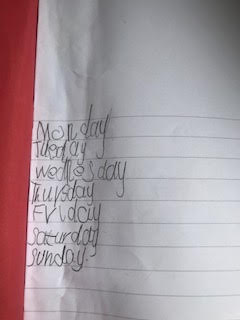 Monday
Tuesday
Wednesday
Thursday
Friday
Saturday
Sunday.